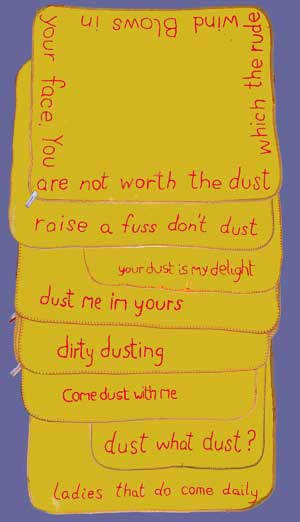 your face. You
are not worth the dust
which the rude
wind Blows in
raise a fuss don't dust
your dust is my delight
dust me im yours
dirty dusting
Come dust with me
dust what dust?
ladies that do come daily